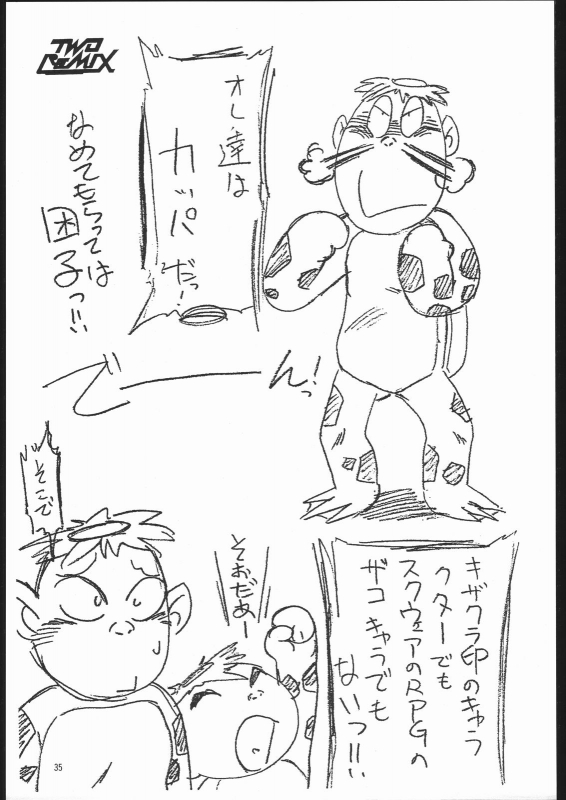 TWO
ReMIX
オレ達は
カッパだっ!
なめてもらっては
困子っ!!
でーーーん!
そこで
そおだぁー
キザクラ印のキャラ
クターでも
スクウェアのRPGの
ザコキャラでも
ないっ!!
35